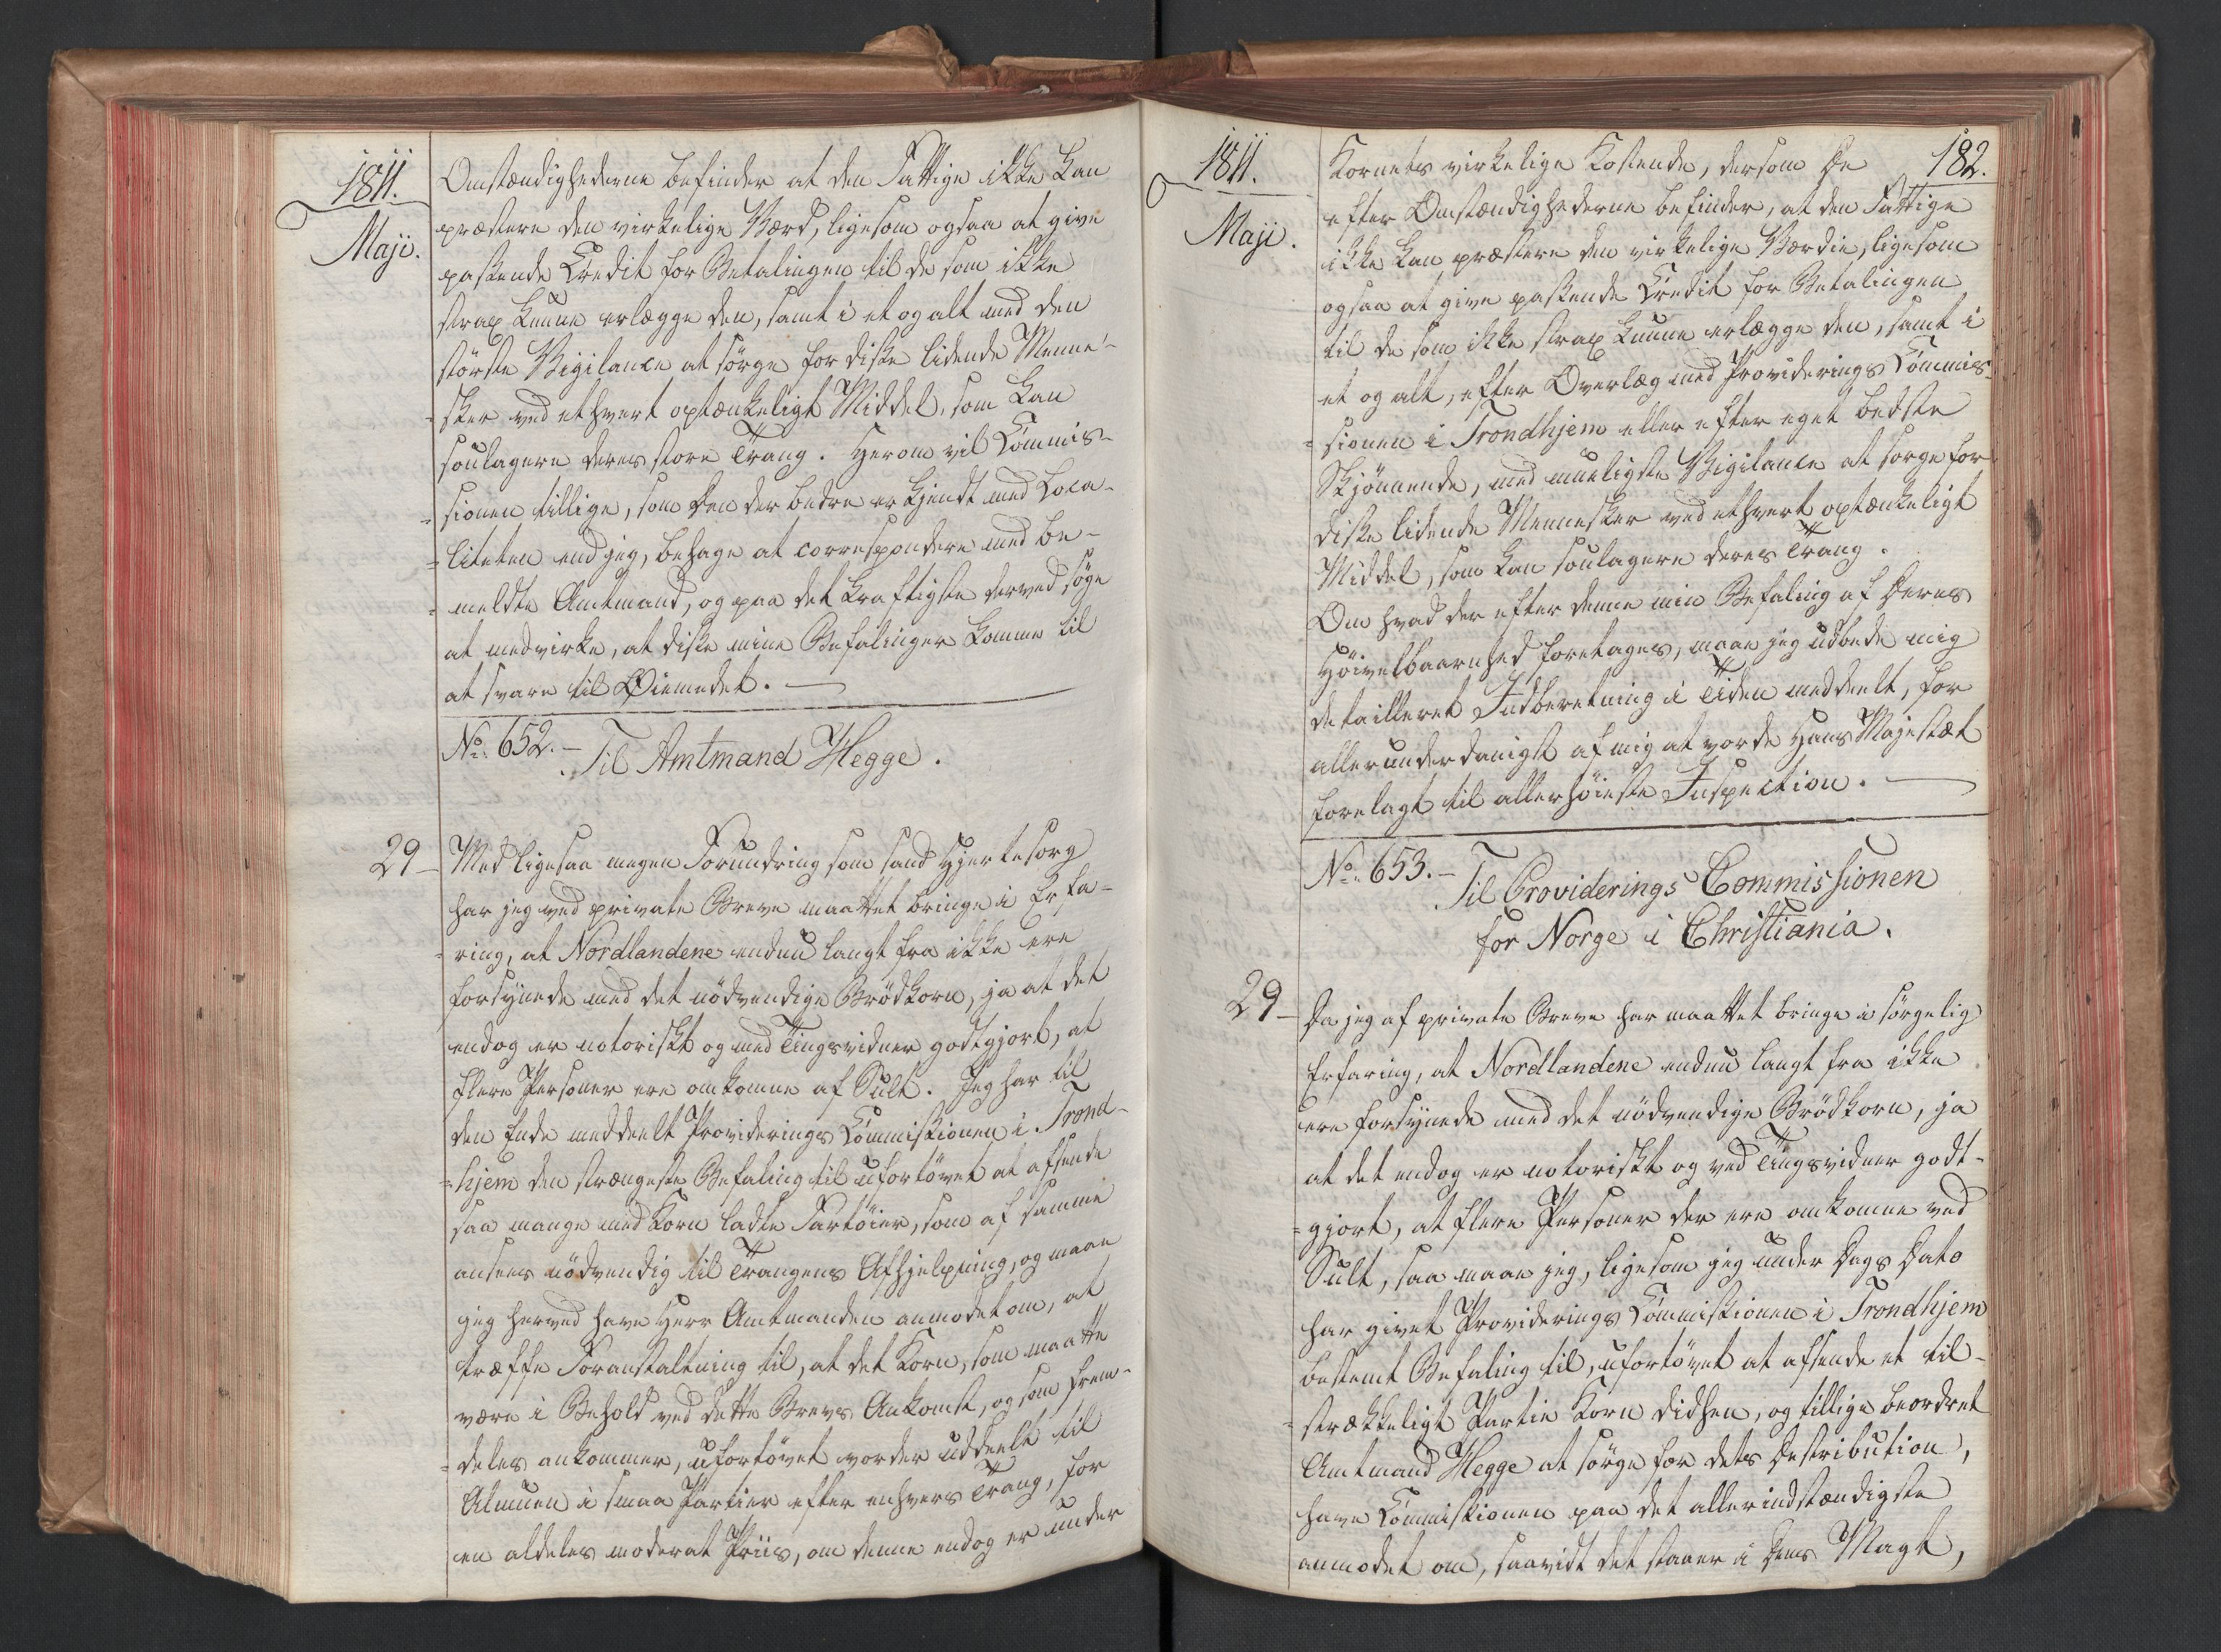 1811.
Maji.
Omstændighederne befinder at den Fattige ikke kan
præstere den virkelige Værd, ligesom ogsaa at give
passende Credit for Betalingen til de som ikke
strax kunne erlægge den, samt i et og alt med den
störste Vigilance at sörge for disse lidende Menne-
-sker ved ethvert optænkeligt Middel, som kan
soulagere deres store Trang. Herom vil Commis-
-sionen tillige, som Den der bedre er kjendt med Loca-
-liteten end jeg, behage at correspondere med be-
-meldte Amtmand, og paa det kraftigste derved söge
at medvirke, at disse mine Befalinger komme til
at svare til Öiemedet. —
No. 652. — Til Amtmand Hegge.
29 — Med ligesaa megen Forundring som sand Hjertesorg
har jeg ved private Breve maattet bringe i Erfa-
-ring, at Nordlandene endnu langt fra ikke ere
forsynede med det nödvendige Brödkorn, ja at det
endog er notoriskt og med Tingsvidner godtgjort, at
flere Personer ere omkomne af Sult. Jeg har til
den Ende meddeelt Providerings Commissionen i Trond-
-hjem den strængeste Befaling til ufortövet at afsende
saa mange med Korn ladte Fartöier, som af samme
ansees nödvendig til Trangens Afhjelpning, og maae
jeg herved have Herr Amtmanden anmodet om, at
træffe Foranstaltning til, at det Korn, som maatte
være i Behold ved dette Brevs Ankomst, og som frem-
-deles ankommer, ufortövet vorder uddeelt til
Almuen i smaa Partier efter enhvers Trang, for
en aldeles moderat Priis, om denne endog er under
1811.
Maji.
182.
Kornets virkelige Kostende, dersom De
efter Omstændighederne befinder, at den Fattige
ikke kan præstere den virkelige Værdie, ligesom
ogsaa at give passende Credit for Betalingen
til de som ikke strax kunne erlægge den, samt i
et og alt, efter Overlæg med Providerings Commis-
-sionen i Trondhjem eller efter eget bedste
Skjönnende, med mueligste Vigilance at sörge for
disse lidende Mennesker ved ethvert optænkeligt
Middel, som kan soulagere deres Trang.
Om hvad der efter denne min Befaling af Deres
Höivelbaarenhed foretages, maae jeg udbede mig
detailleret Indberetning i Tiden meddeelt, for
allerunderdanigst af mig at vorde Hans Majestæt
forelagt til allerhöieste Inspection. —
No. 653. — Til Providerings Commissionen
for Norge i Christiania.
29 — Da jeg af private Breve har maattet bringe i sörgelig
Erfaring, at Nordlandene endnu langt fra ikke
ere forsynede med det nödvendige Brödkorn, ja
at det endog er notoriskt og ved Tingsvidner godt-
-gjort, at flere Personer der ere omkomne ved
Sult, saa maae jeg, ligesom jeg under Dags Dato
har givet Providerings Commissionen i Trondhjem
bestemt Befaling til, ufortövet at afsende et til-
-strækkeligt Partie Korn didhen, og tillige beordret
Amtmand Hegge at sörge for dets Destribution,
have Commissionen paa det allerindstændigste
anmodet om, saavidt det staaer i Dens Magt,